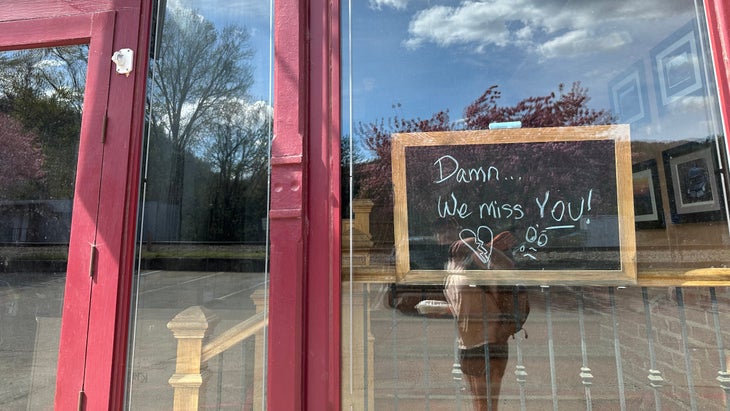 Damn...
We miss YOU!